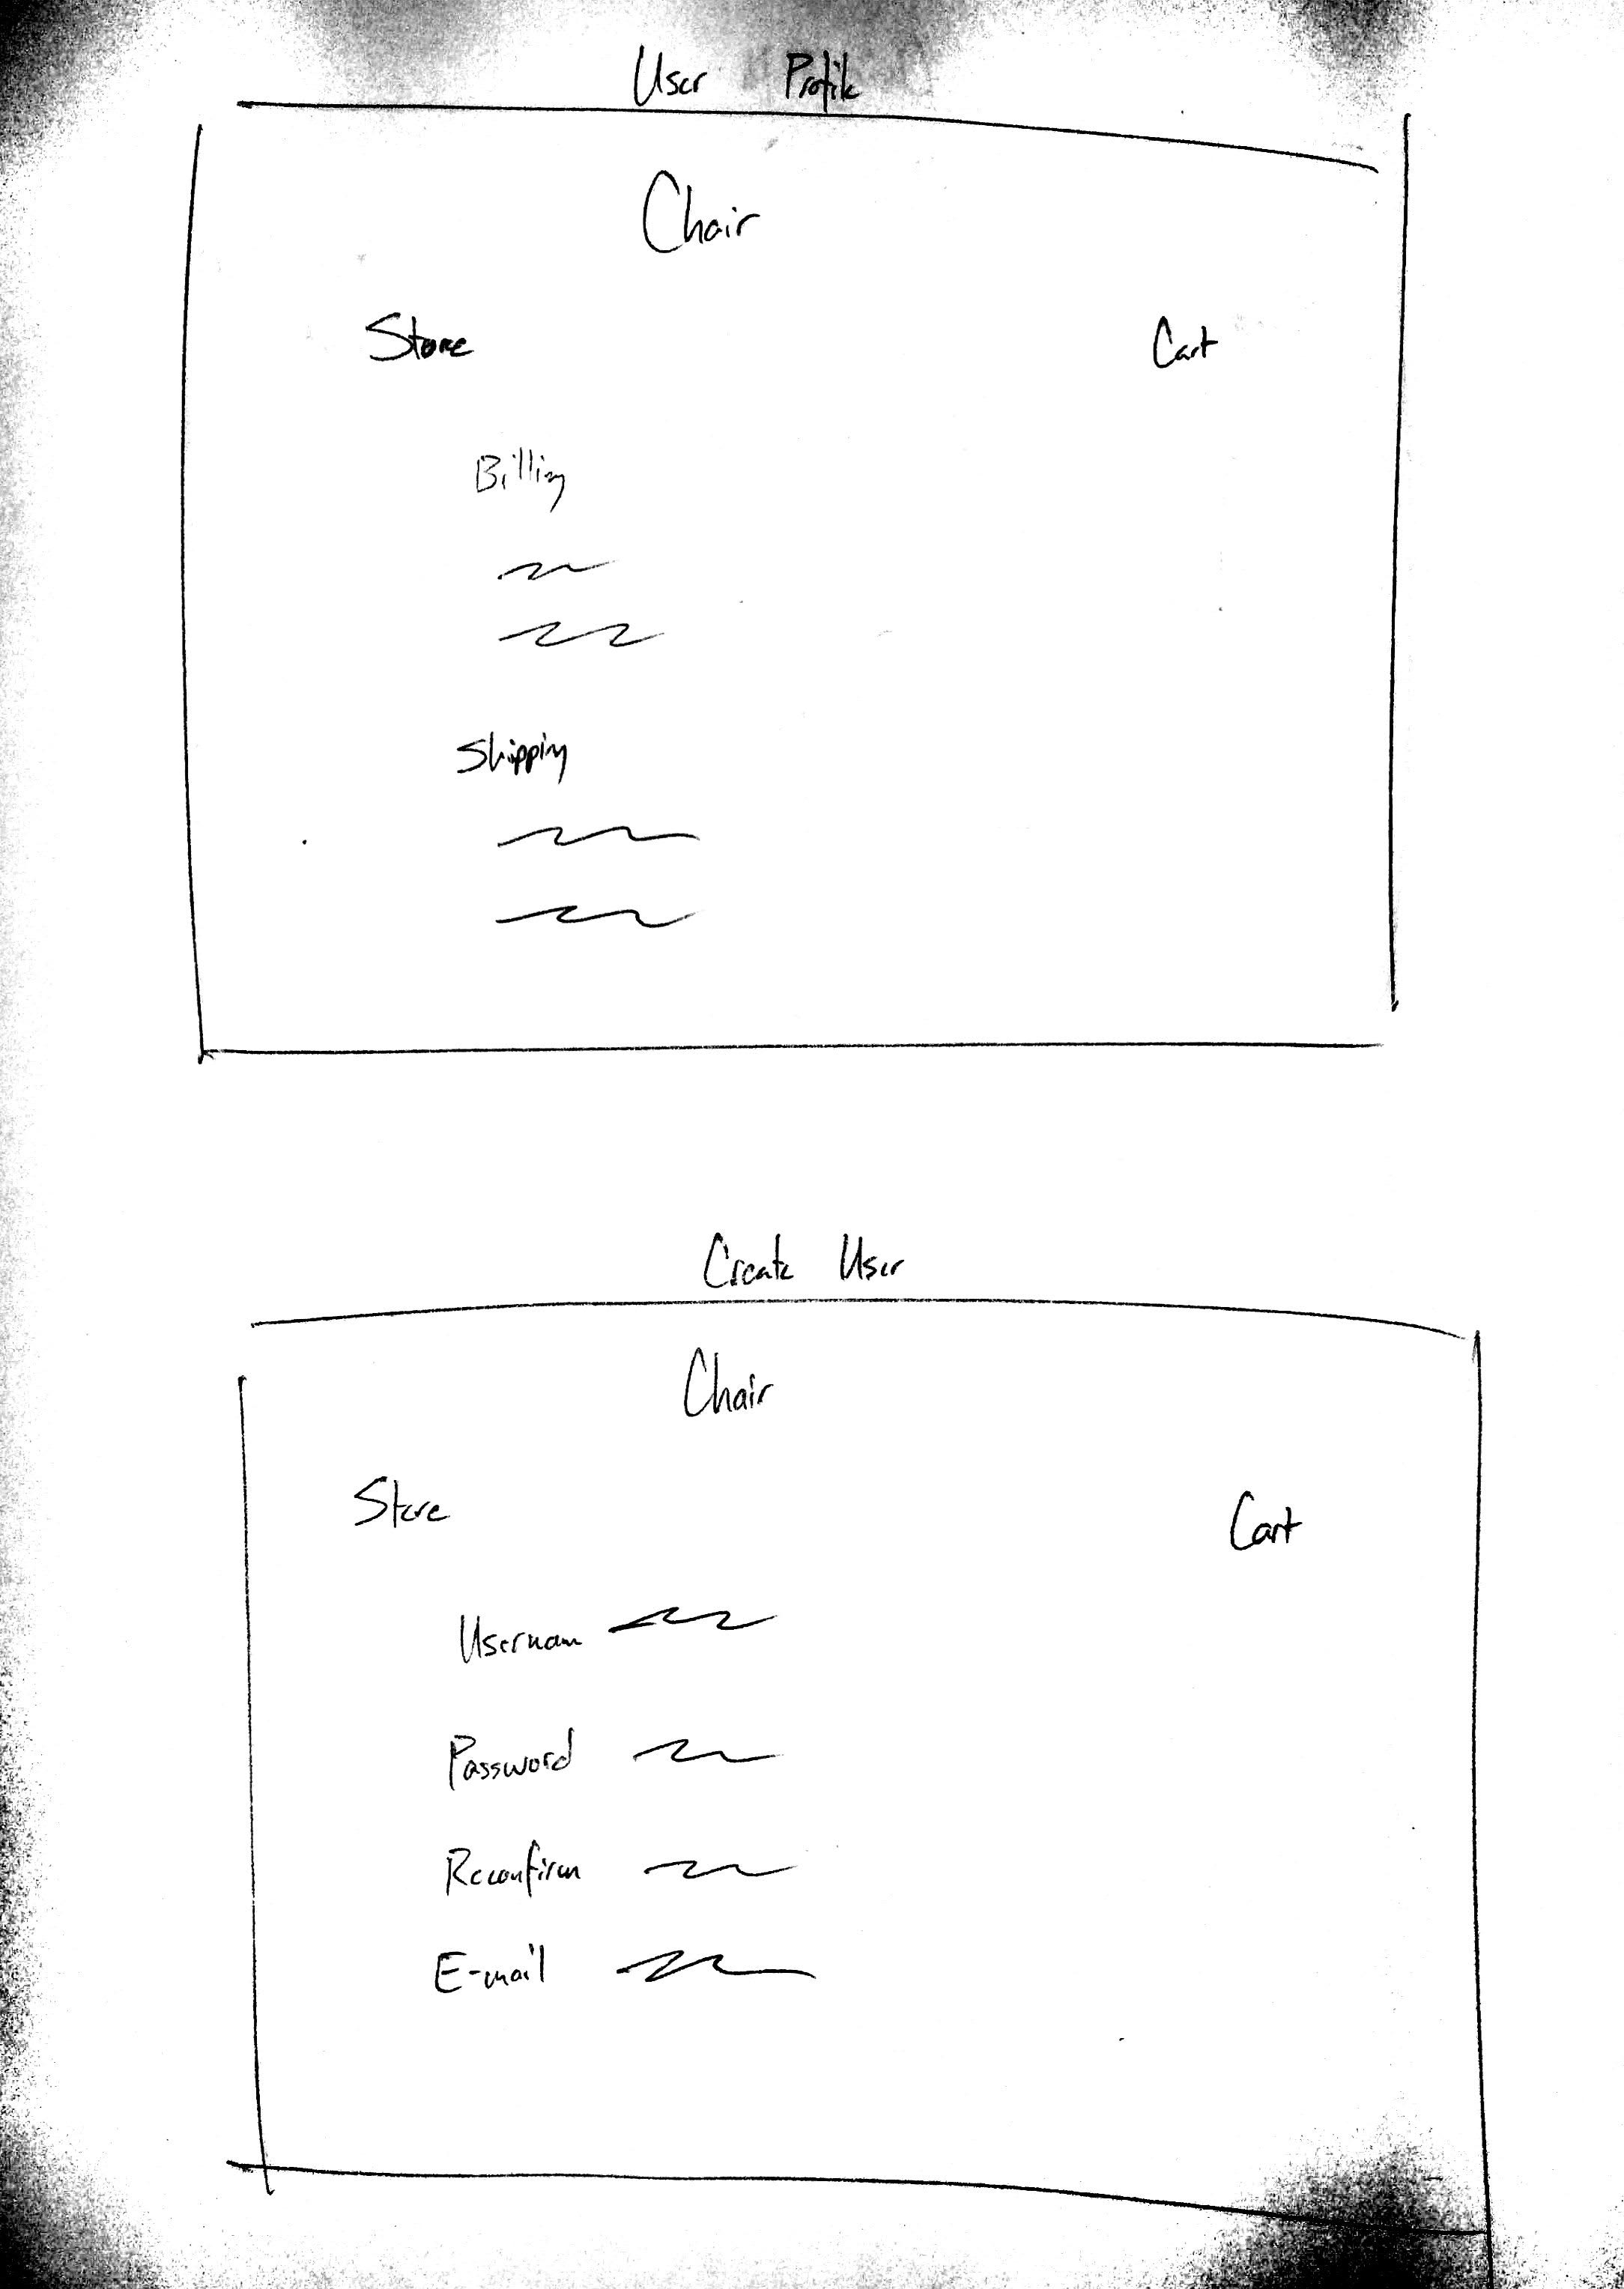 User Profile
Chair
Store Cart
Billing
Shipping
Create User
Chair
Store Cart
Username
Password
Reconfirm
E-mail